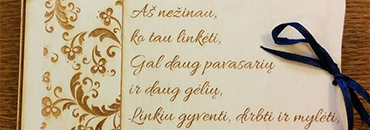 Aš nežinau,
ko tau linkėti,
Gal daug pavasarių
ir daug gėlių,
Linkiu gyventi, dirbti ir mylėti,